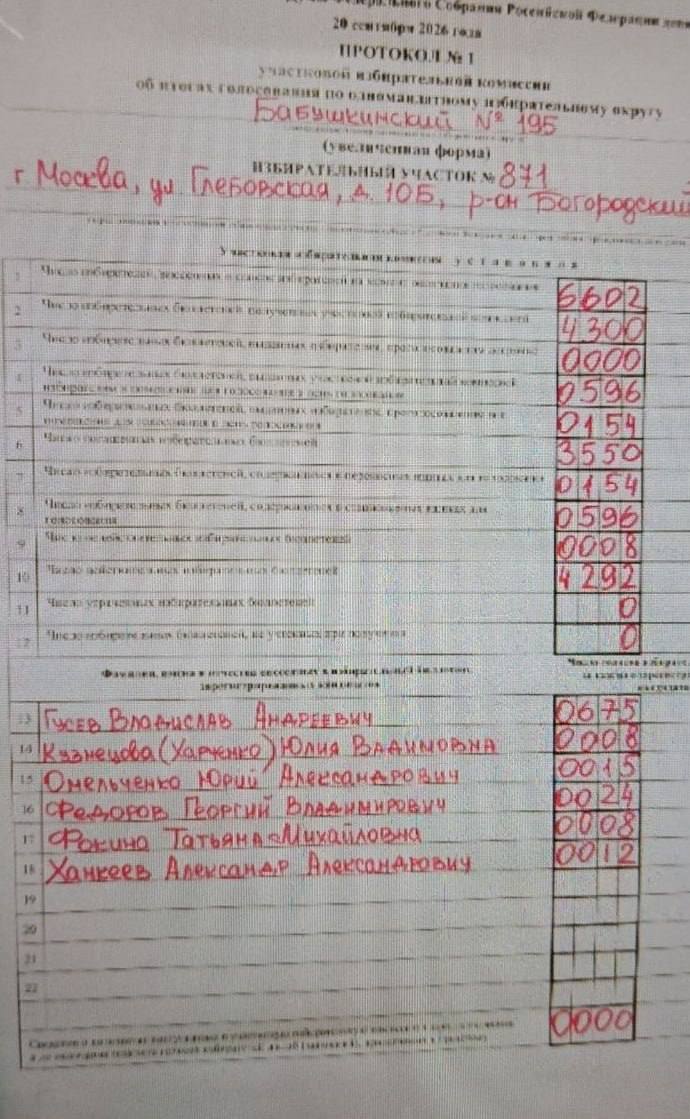 Федерального Собрания Российской Федерации
20 сентября 2026 года
ПРОТОКОЛ № 1
участковой избирательной комиссии
об итогах голосования по одномандатному избирательному округу
Бабушкинский № 195
(увеличенная форма)
ИЗБИРАТЕЛЬНЫЙ УЧАСТОК № 871
г Москва, ул Глебовская, д. 10Б, р-он Богородский
Участковая избирательная комиссия установила
1 Число избирателей, внесенных в список избирателей на момент окончания голосования 6602
2 Число избирательных бюллетеней, полученных участковой избирательной комиссией 4300
3 Число избирательных бюллетеней, выданных избирателям, проголосовавшим досрочно 0000
4 Число избирательных бюллетеней, выданных участковой избирательной комиссией
избирателям в помещении для голосования в день голосования 0596
5 Число избирательных бюллетеней, выданных избирателям, проголосовавшим вне
помещения для голосования в день голосования 0154
6 Число погашенных избирательных бюллетеней 3550
7 Число избирательных бюллетеней, содержащихся в переносных ящиках для голосования 0154
8 Число избирательных бюллетеней, содержащихся в стационарных ящиках для
голосования 0596
9 Число недействительных избирательных бюллетеней 0008
10 Число действительных избирательных бюллетеней 4292
11 Число утраченных избирательных бюллетеней 0
12 Число избирательных бюллетеней, не учтенных при получении 0
Фамилии, имена и отчества внесенных в избирательный бюллетень
зарегистрированных кандидатов
Число голосов
13 Гусев Владислав Андреевич 0675
14 Кузнецова (Харченко) Юлия Вадимовна 0008
15 Омельченко Юрий Александрович 0015
16 Федоров Георгий Владимирович 0024
17 Фокина Татьяна Михайловна 0008
18 Ханкеев Александр Александрович 0012
19
20
21
22
0000